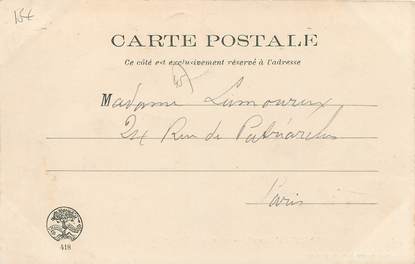 15€
CARTE POSTALE
Ce côté est exclusivement réservé à l'adresse
Madame Lamoureux
Rue de
Paris
418